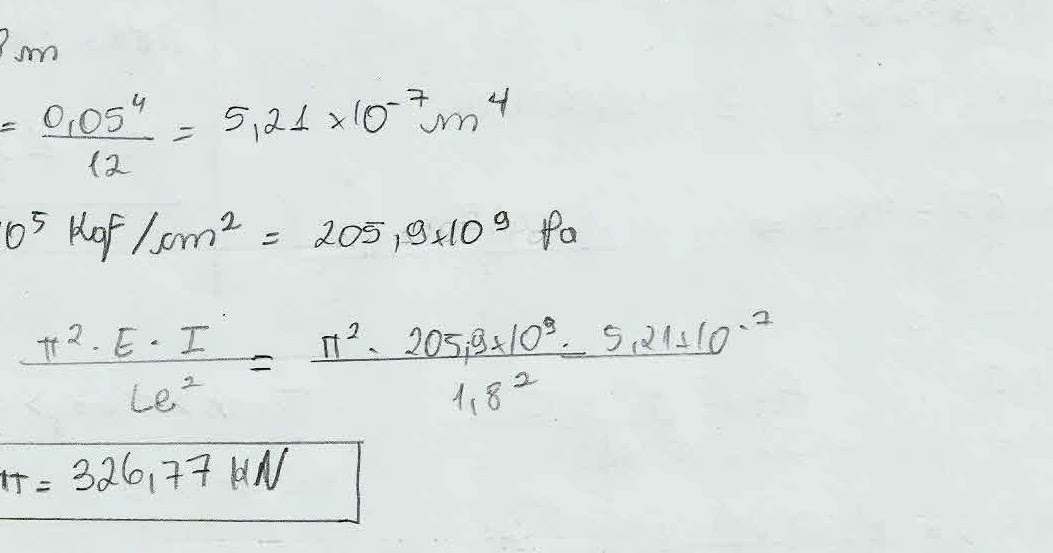 m
= 0,05⁴ / 12 = 5,21 x 10⁻⁷ m⁴
10⁵ Kgf/cm² = 205,9x10⁹ Pa
π² · E · I / Le² = π² · 205,9x10⁹ · 5,21x10⁻⁷ / 1,8²
= 326,77 KN